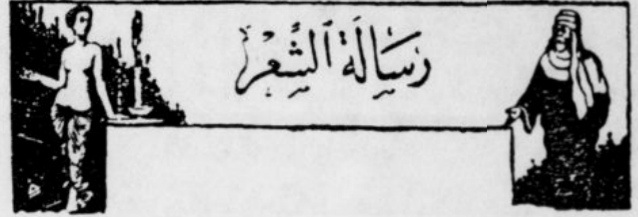 رِسَالَةُ ٱلشِّعْر